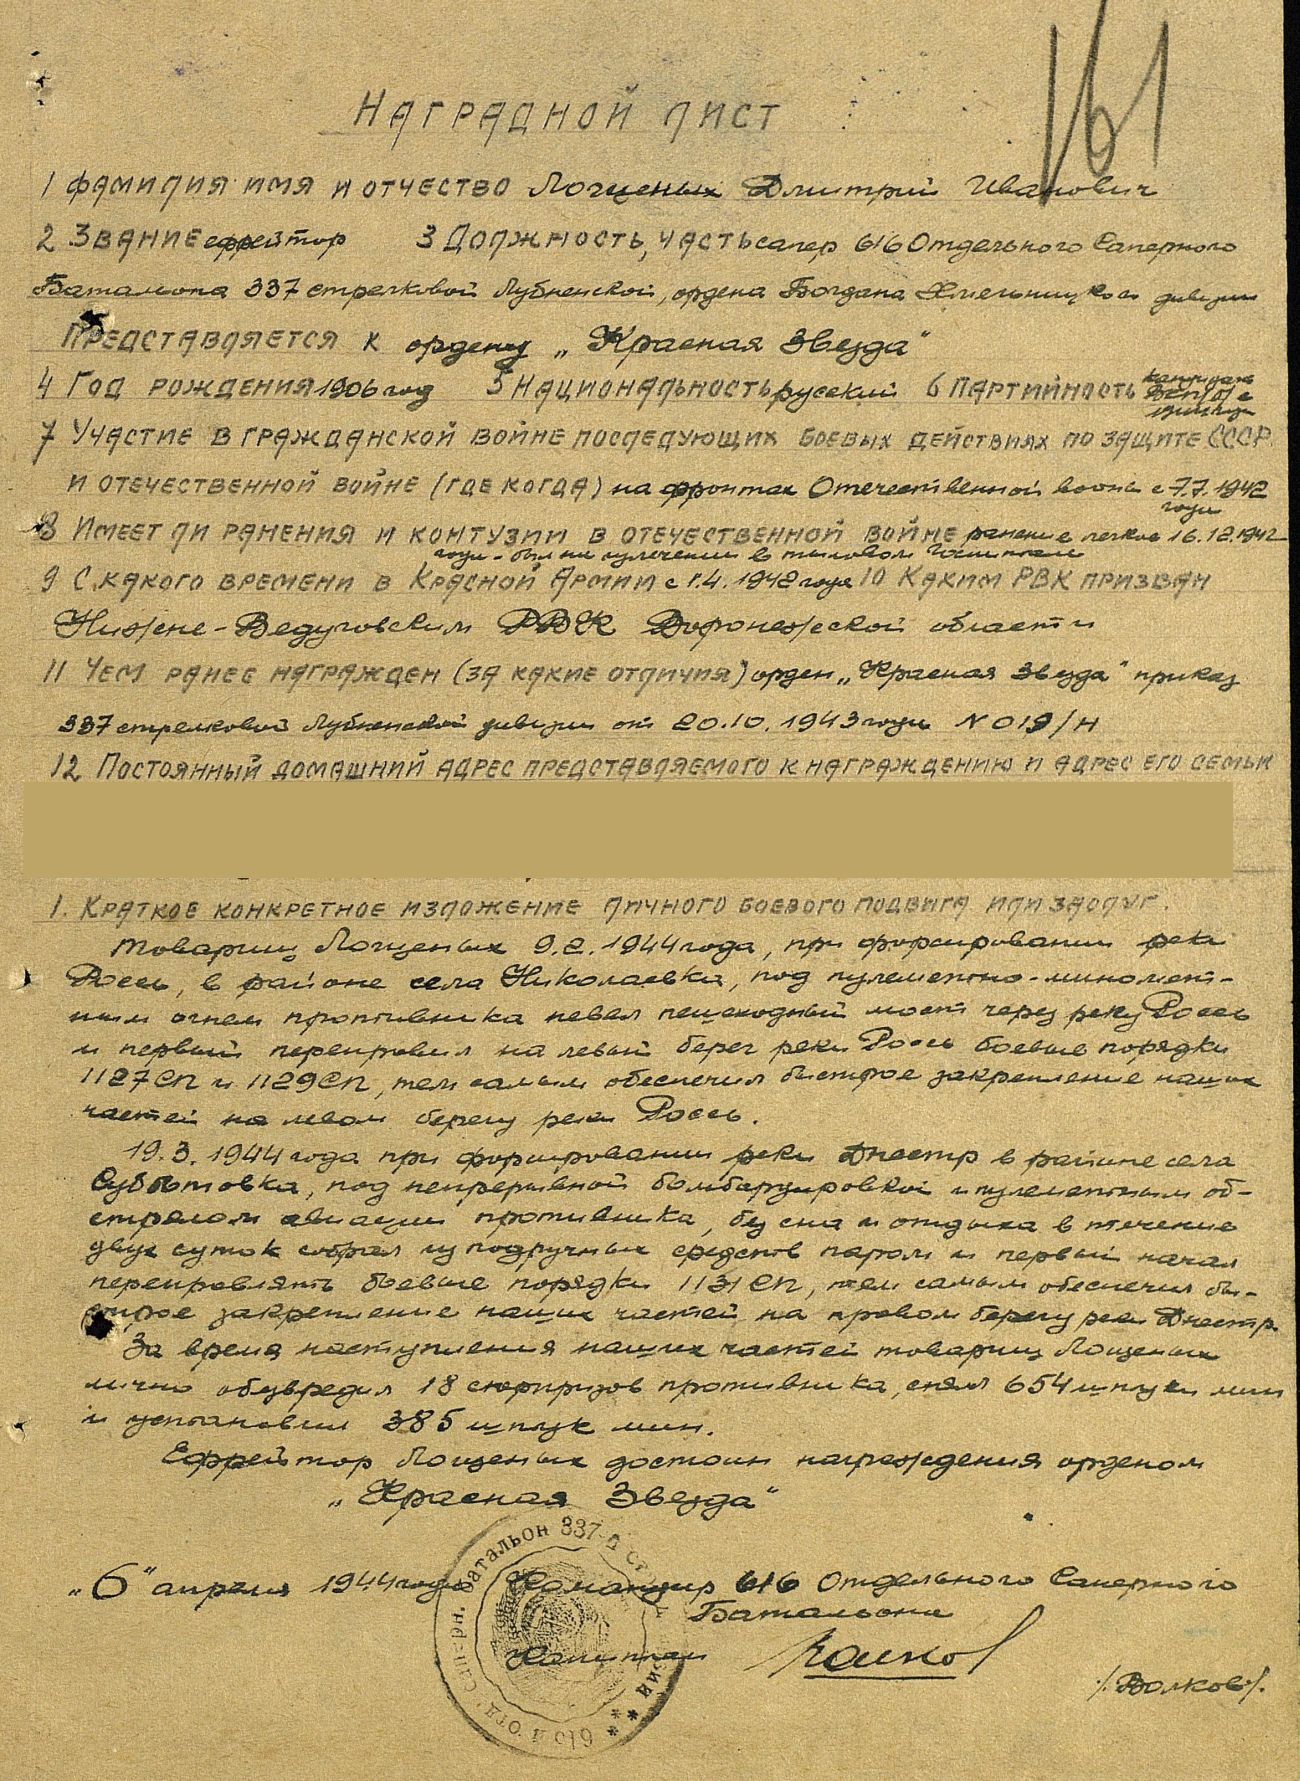 161
НАГРАДНОЙ ЛИСТ
1 ФАМИЛИЯ ИМЯ И ОТЧЕСТВО Лощеных Дмитрий Иванович
2 ЗВАНИЕ ефрейтор 3 ДОЛЖНОСТЬ, ЧАСТЬ сапер 616 Отдельного Саперного
Батальона 337 стрелковой Лубненской, ордена Богдана Хмельницкого дивизии
ПРЕДСТАВЛЯЕТСЯ К ордену „Красная Звезда"
4 ГОД РОЖДЕНИЯ 1906 год 5 НАЦИОНАЛЬНОСТЬ русский 6 ПАРТИЙНОСТЬ кандидат ВКП(б) с
7 УЧАСТИЕ В ГРАЖДАНСКОЙ ВОЙНЕ ПОСЛЕДУЮЩИХ БОЕВЫХ ДЕЙСТВИЯХ ПО ЗАЩИТЕ СССР
И ОТЕЧЕСТВЕННОЙ ВОЙНЕ (ГДЕ КОГДА) на фронтах Отечественной войны с 7.7.1942
года
8 ИМЕЕТ ЛИ РАНЕНИЯ И КОНТУЗИИ В ОТЕЧЕСТВЕННОЙ ВОЙНЕ ранение легкое 16.12.1942
года - был на излечении в тыловом госпитале
9 С КАКОГО ВРЕМЕНИ В КРАСНОЙ АРМИИ с 1.4.1942 года 10 КАКИМ РВК ПРИЗВАН
Нижне-Ведуговским РВК Воронежской области
11 ЧЕМ РАНЕЕ НАГРАЖДЕН (ЗА КАКИЕ ОТЛИЧИЯ) орден „Красная Звезда" приказ
337 стрелковой Лубненской дивизии от 20.10.1943 года N 019/Н
12 ПОСТОЯННЫЙ ДОМАШНИЙ АДРЕС ПРЕДСТАВЛЯЕМОГО К НАГРАЖДЕНИЮ И АДРЕС ЕГО СЕМЬИ
1. КРАТКОЕ КОНКРЕТНОЕ ИЗЛОЖЕНИЕ ЛИЧНОГО БОЕВОГО ПОДВИГА ИЛИ ЗАСЛУГ.
Товарищ Лощеных 9.2.1944 года, при форсировании реки
Россь, в районе села Николаевка, под пулеметно-миномет-
ным огнем противника навел пешеходный мост через реку Россь
и первый переправил на левый берег реки Россь боевые порядки
1127 СП и 1129 СП, тем самым обеспечил быстрое закрепление наших
частей на левом берегу реки Россь.
19.3.1944 года при форсировании реки Днестр в районе села
Субботовка, под непрерывной бомбардировкой и пулеметным об-
стрелом авиации противника, без сна и отдыха в течение
двух суток собрал из подручных средств паром и первый начал
переправлять боевые порядки 1131 СП, тем самым обеспечил бы-
строе закрепление наших частей на правом берегу реки Днестр.
За время наступления наших частей товарищ Лощеных
лично обезвредил 18 сюрпризов противника, снял 654 штуки мин
и установил 385 штук мин.
Ефрейтор Лощеных достоин награждения орденом
„Красная Звезда"
„6" апреля 1944 года Командир 616 Отдельного Саперного
Батальона
Капитан Волков /Волков/.
616 й отд. саперн. батальон 337 й